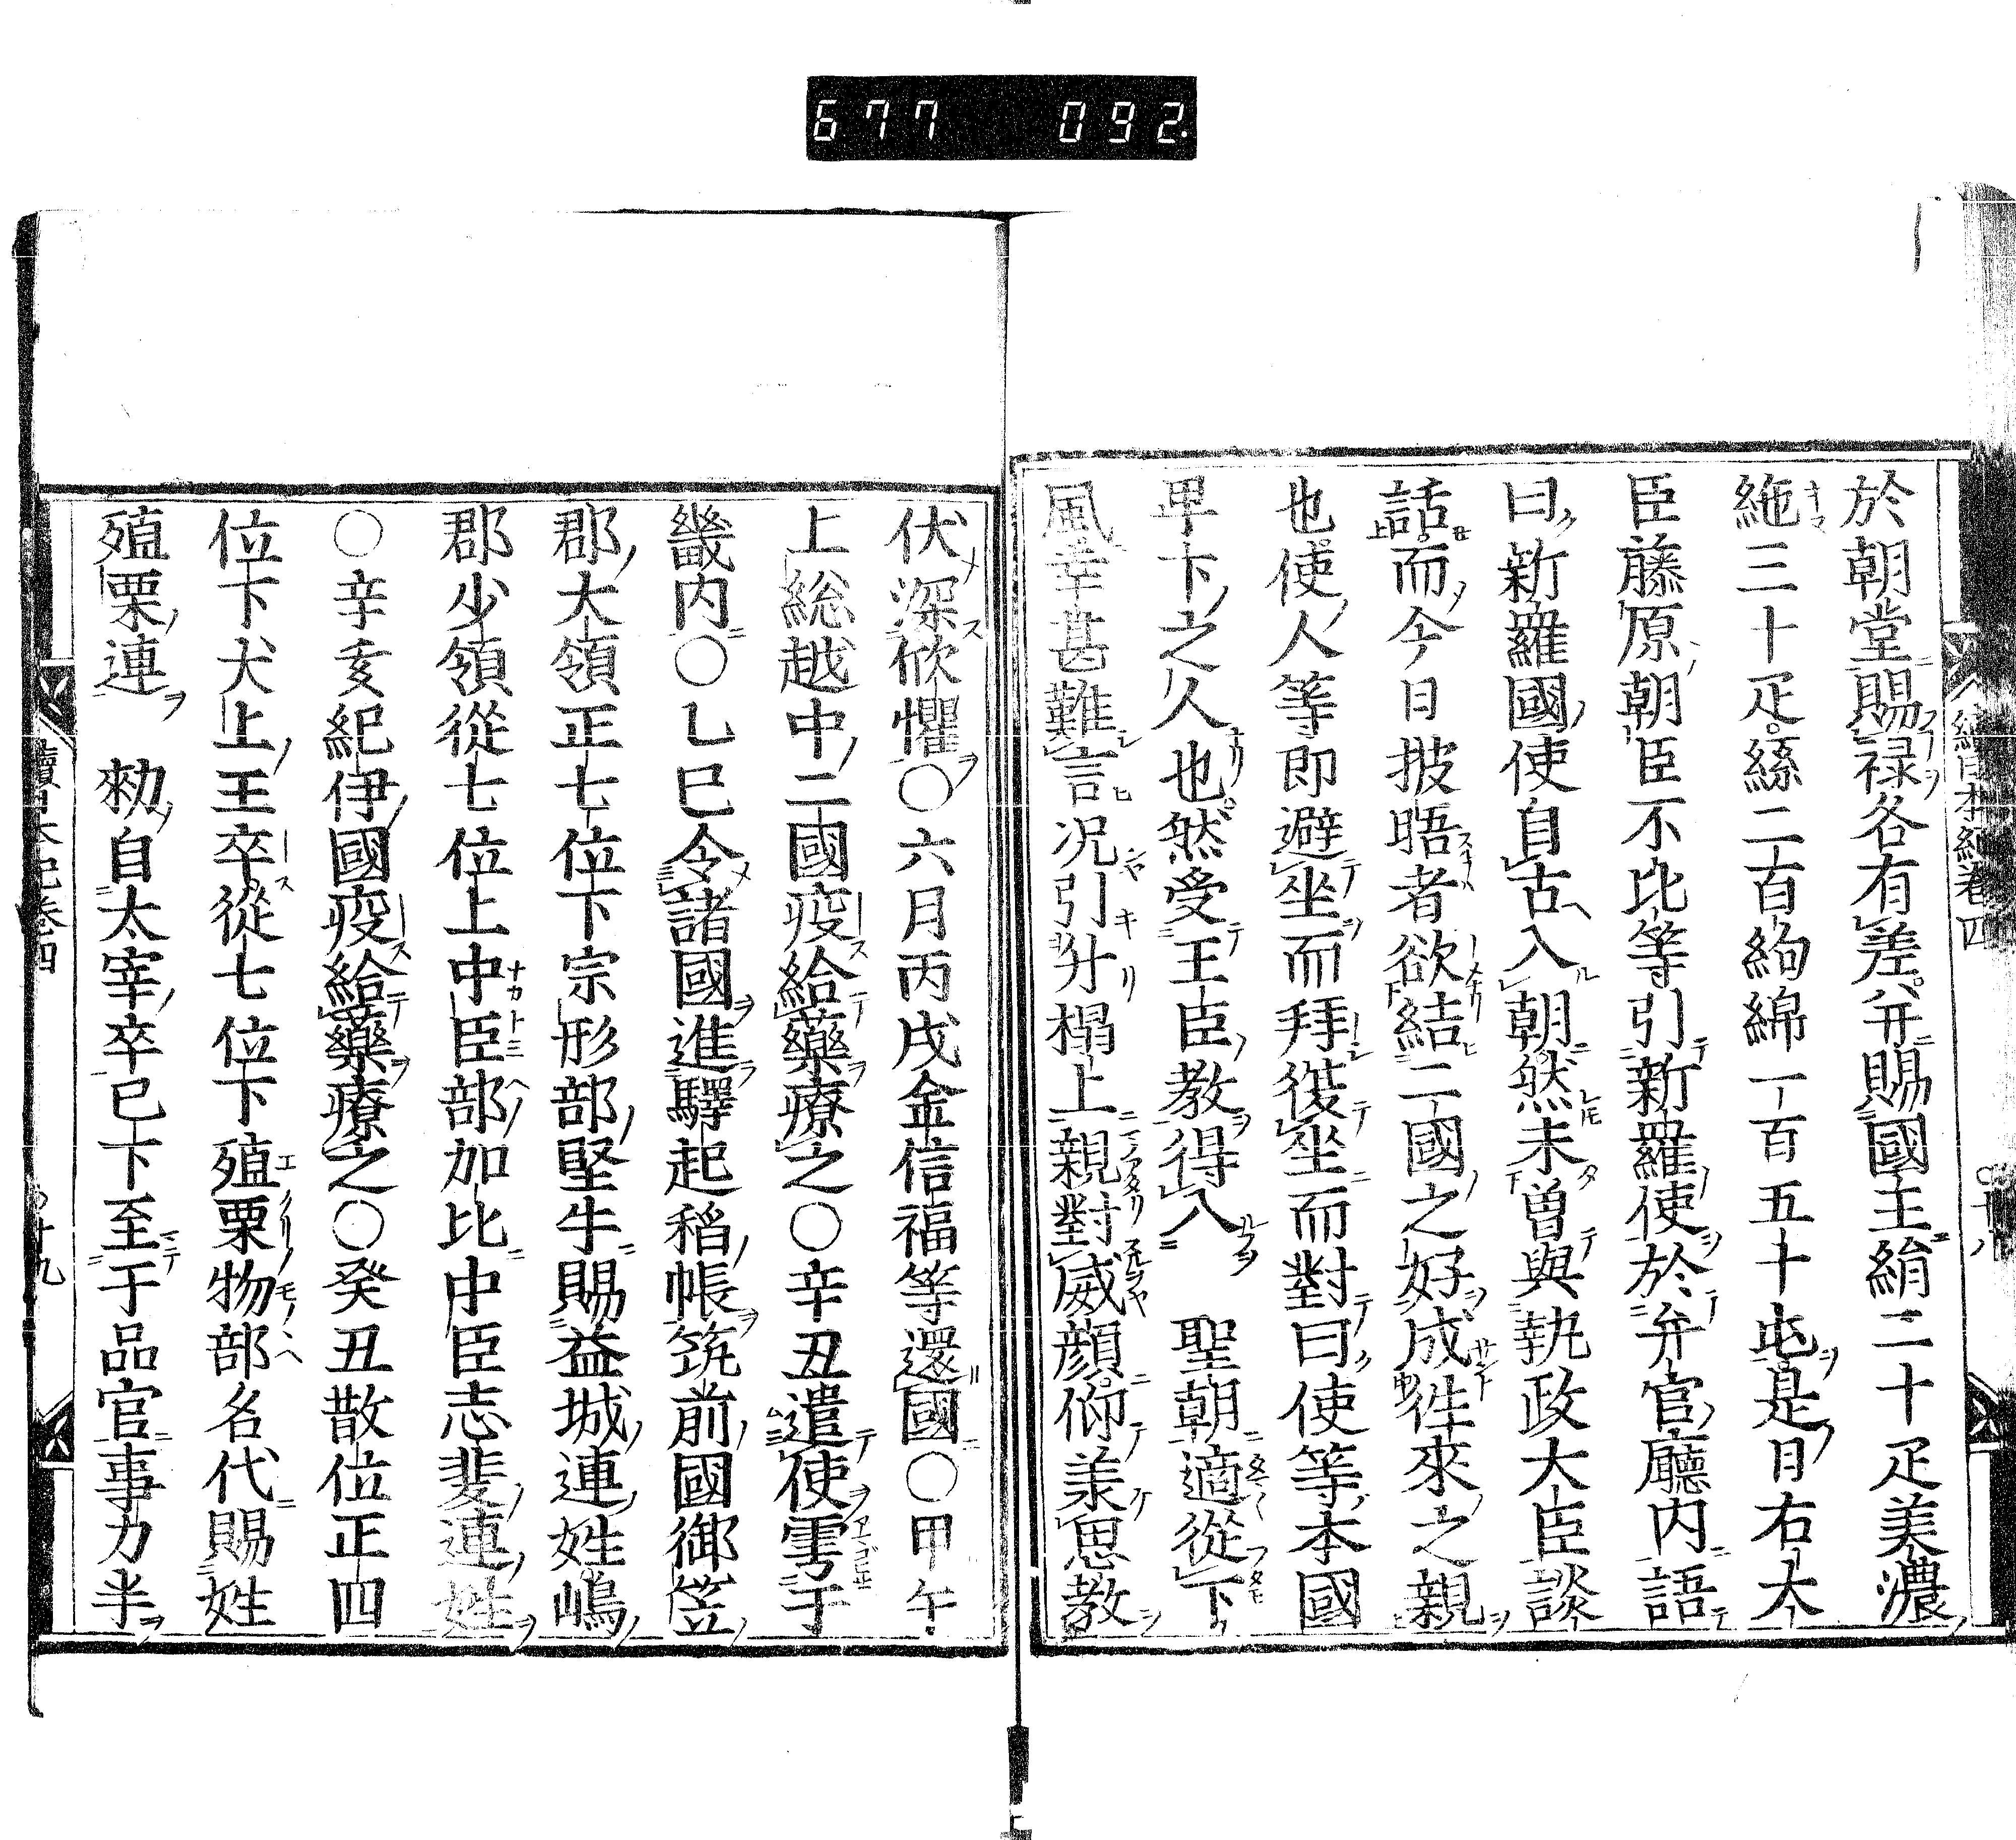 677 092.
續日本紀卷四 ○十八
於朝堂賜祿各有差。幷賜國主絹二十疋美濃
絁三十疋。絲二百絇綿一百五十屯。是日右大
臣藤原朝臣不比等引新羅使於弁官廳內語
曰新羅國使自古入朝然未曽與執政大臣談
話而今日披晤者欲結二國之好成徃來之親
也。使人等即避坐而拜復坐而對曰使等本國
卑下之人也。然受王臣教得入 聖朝適從下
風幸甚難言况引升榻上親對威顔仰羨恩教
伏深欣懼○六月丙戌金信福等還國○甲午
上総越中二國疫給藥療之○辛丑遣使雩于
畿内○乙巳令諸國進驛起稻帳筑前國御笠
郡大領正七位下宗形部堅牛賜益城連姓。嶋
郡少領從七位上中臣部加比中臣志斐連姓
○辛亥紀伊國疫給藥療之○癸丑散位正四
位下犬上王卒。從七位下殖栗物部名代賜姓
殖栗連 勑自太宰卒已下至于品官事力半
續日本紀卷四 ○十九